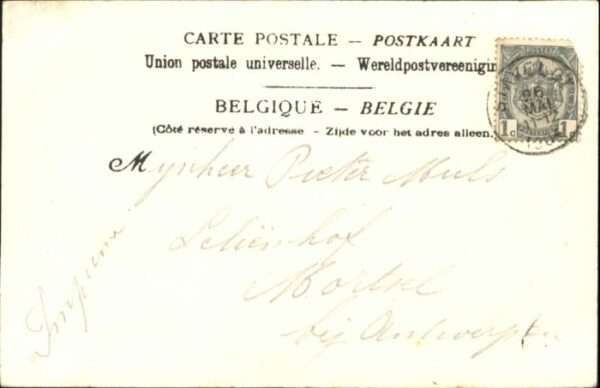 CARTE POSTALE — POSTKAART
Union postale universelle. — Wereldpostvereenigin
BELGIQUE — BELGIE
(Côté réservé à l'adresse - Zijde voor het adres alleen.)
26
MAI
1c 1c
Mijnheer Pieter Muls
Leliënhof
Mortsel
bij Antwerpen
Imprimé